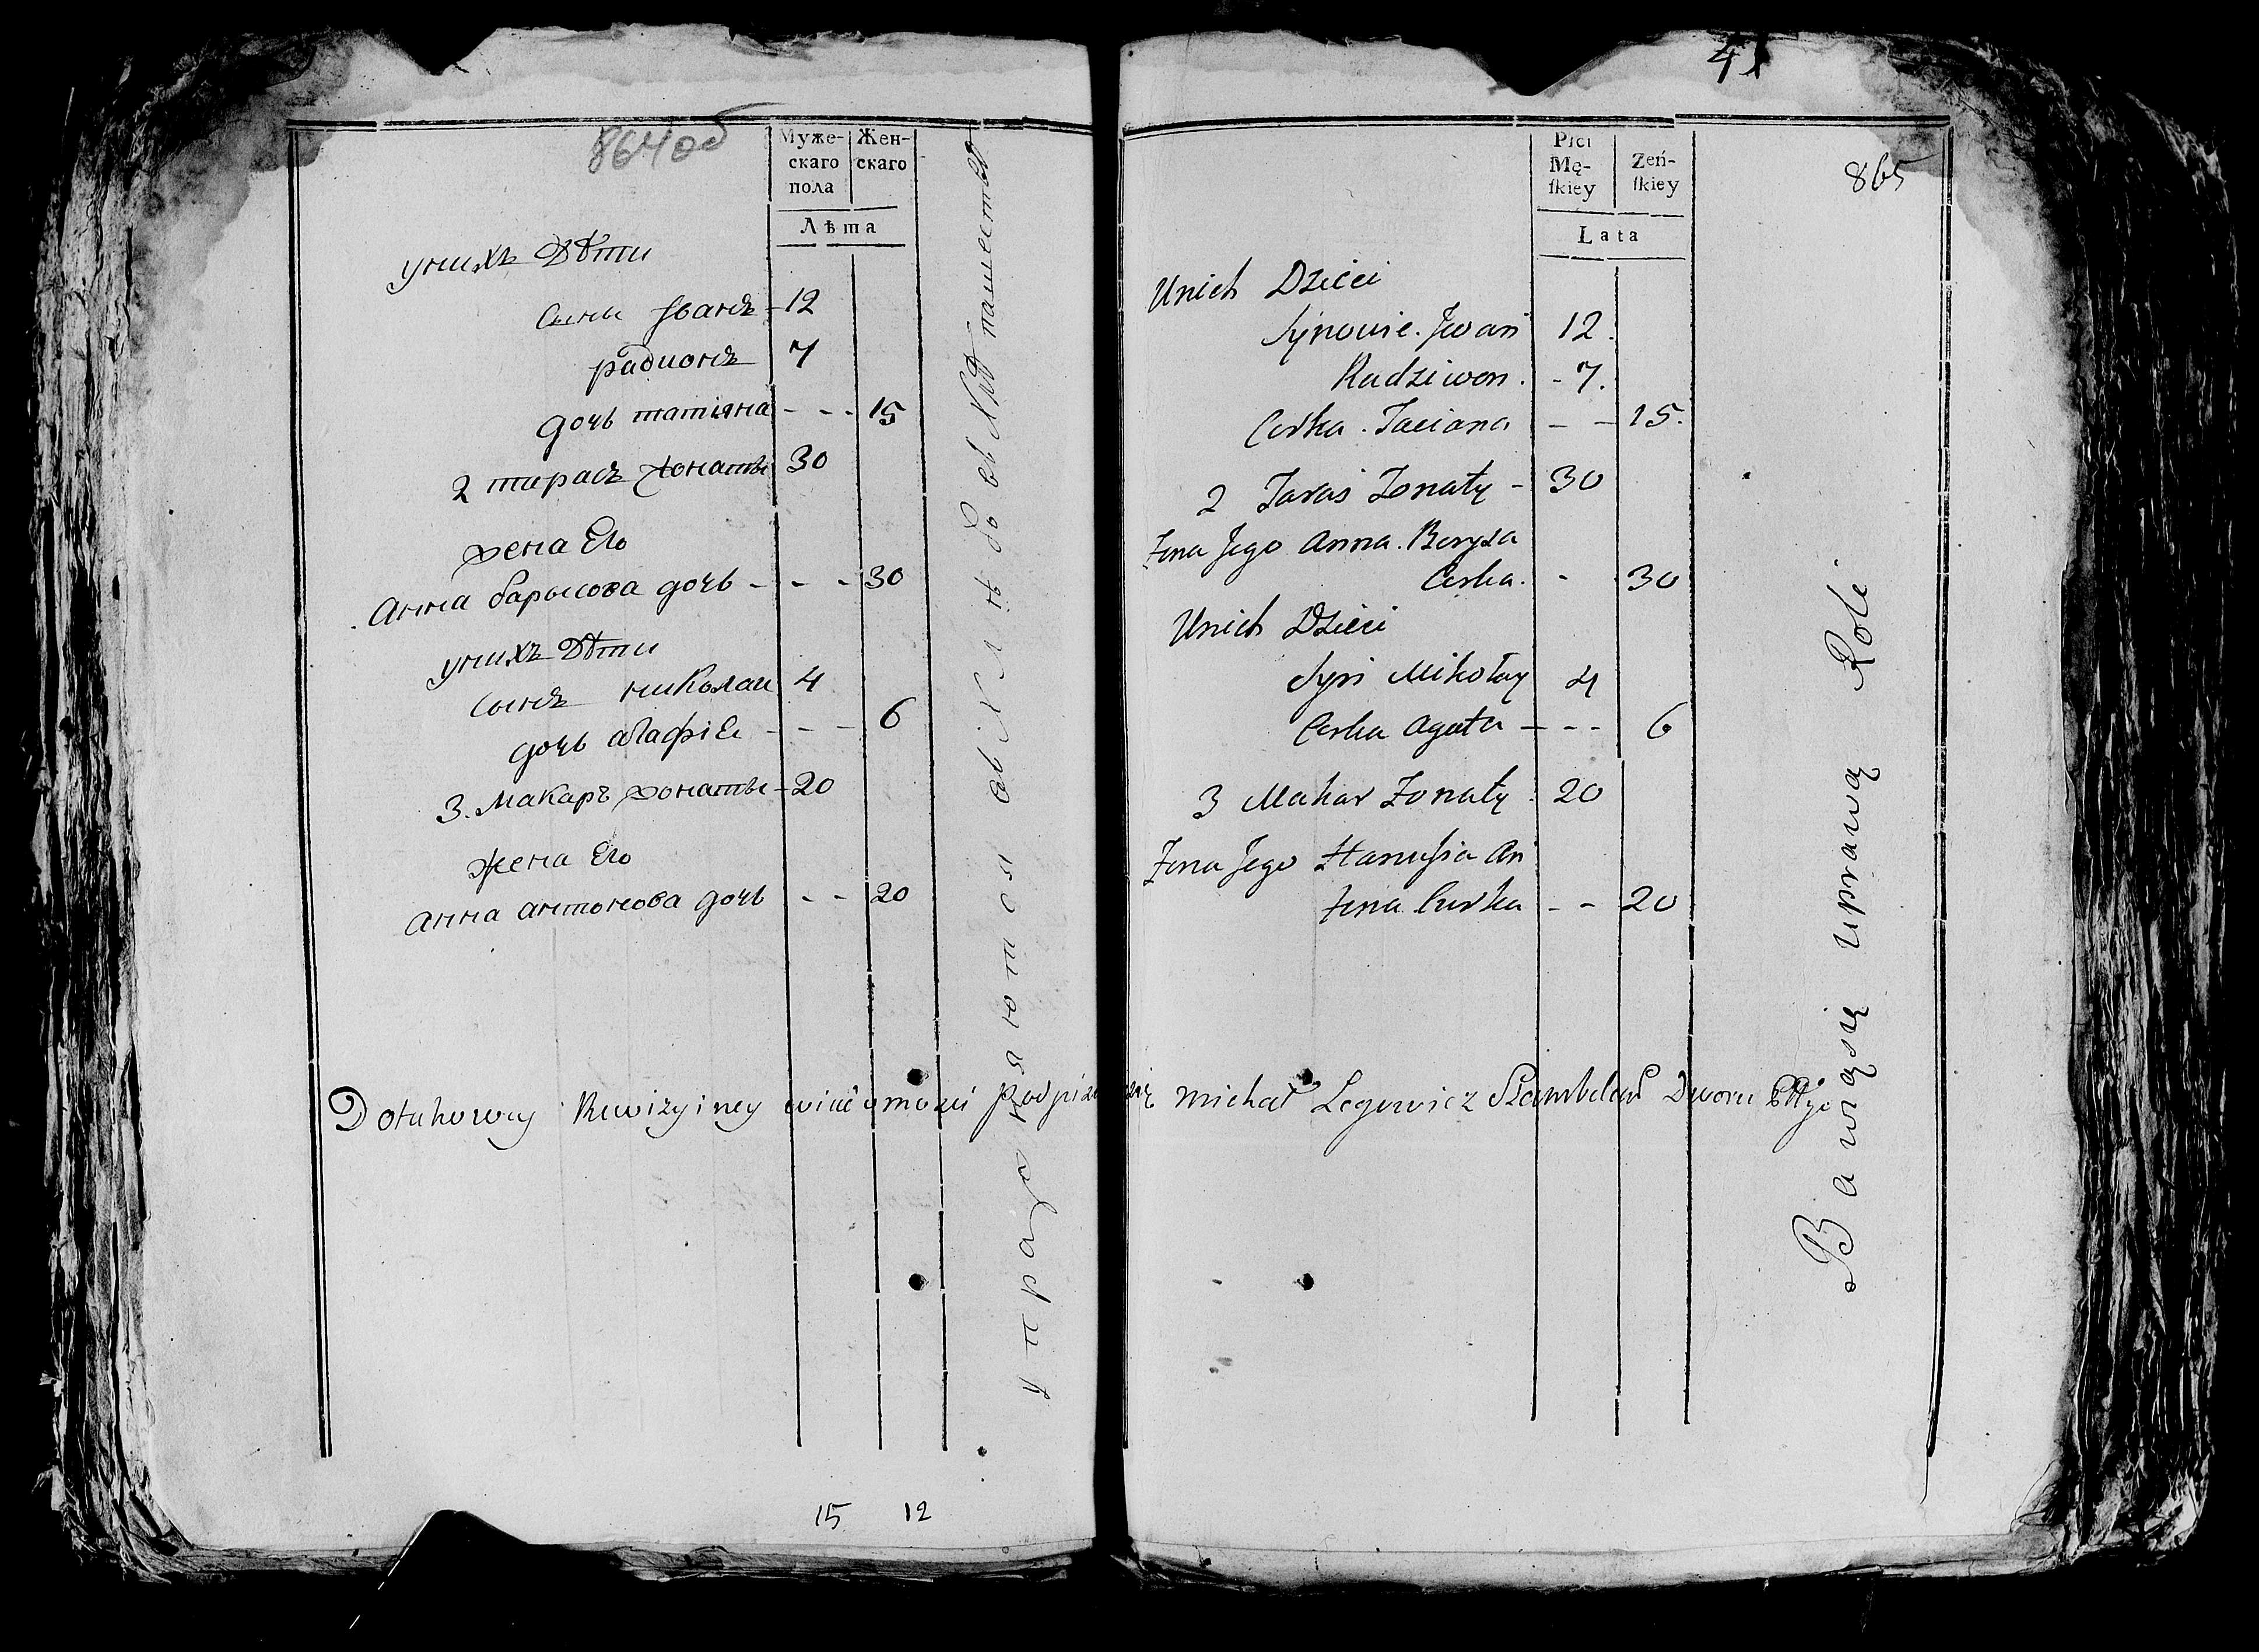 864об
Муже-
скаго
пола
Жен-
скаго
Лѣта
унихъ Дѣти
сыни Іванъ - 12
радионъ 7
дочь татіяна - - - 15
2 тарасъ жонаты 30
жена Его
Анна барысова дочь - - - 30
унихъ Дѣти
сынъ николаи 4
дочь агафіе - - - 6
3. Макаръ жонаты - 20
жена Его
анна антонова дочь - - 20
упражняются
15 12
41
865
Płci
Mę-
skiey
Zeń-
skiey
Lata
Unich Dzieci
Synowie. Jwan 12.
Radziwon. - 7.
Corka. Taciana - - 15.
2 Taras Zonaty - 30
Zona Jego Anna. Borysa
Corka. - 30
Unich Dzieci
Syn Mikołay 4
Corka Agata - - - 6
3 Makar Zonaty. 20
Zona Jego Hanusia An
tona Curka - - 20
Bawią się uprawą Roli
Dotakowey Rewizyiney wiadomości podpisuie się Michał Legowicz Szambelan Dworu